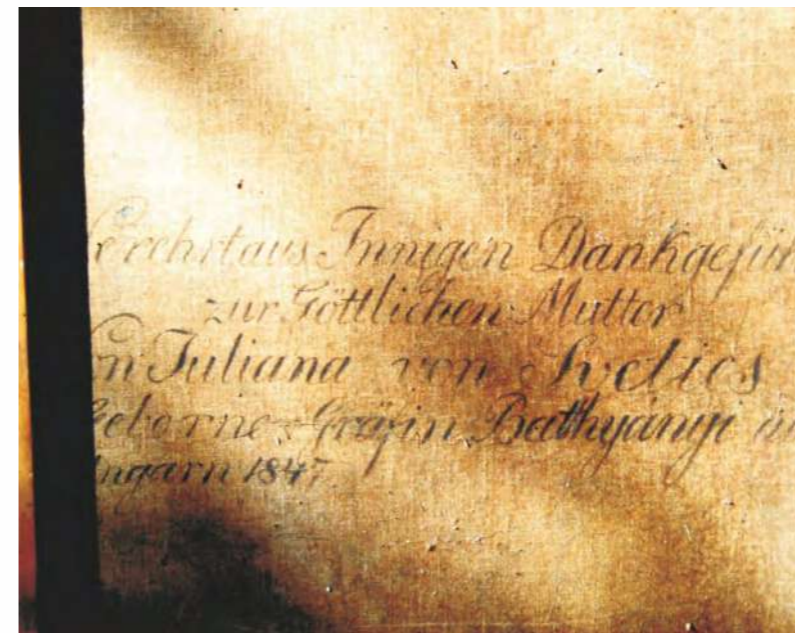 Verehrt aus Innigen Dankgefüh
zur Göttlichen Mutter
on Juliana von Svetics
Geborne Gräfin Batthyányi in
Ungarn 1847